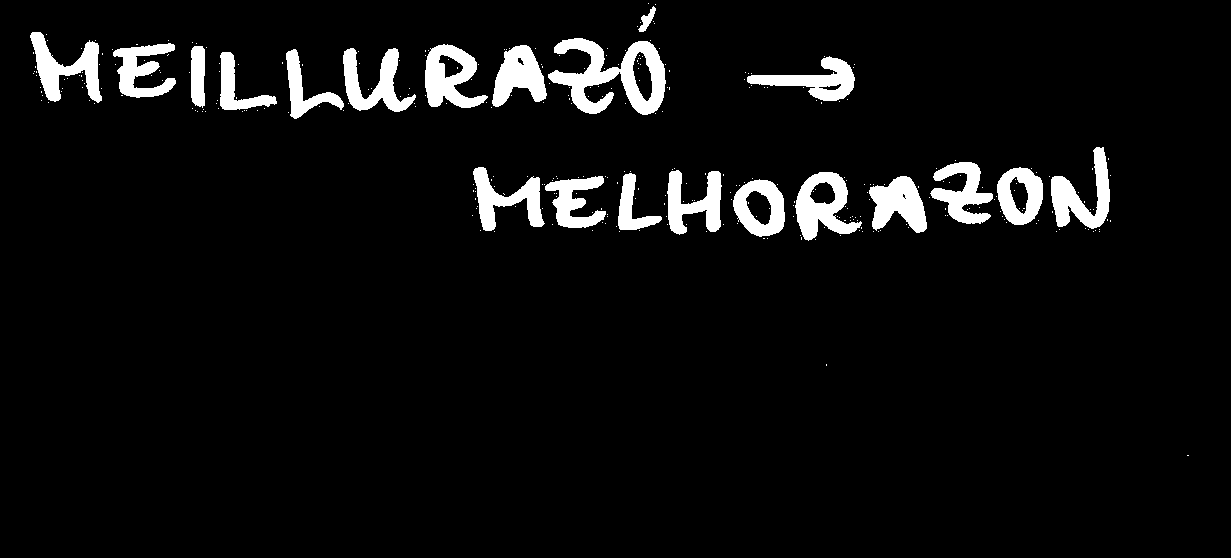 MEILLURAZÓ →
MELHORAZON